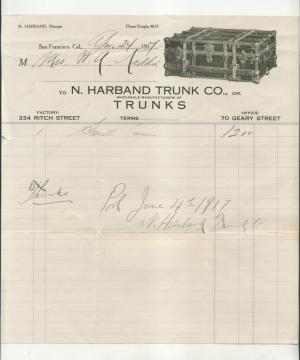 N. HARBAND, Manager Phone Douglas 4635
San Francisco, Cal., Apr. 24 1917
M Mrs. W. A.
TO N. HARBAND TRUNK CO., DR.
WHOLESALE MANUFACTURERS OF
TRUNKS
FACTORY: OFFICE
334 RITCH STREET TERMS 70 GEARY STREET
1 Suit case 12 00
Thanks
Pd June 4th 1917
N. Harband Trunk Co